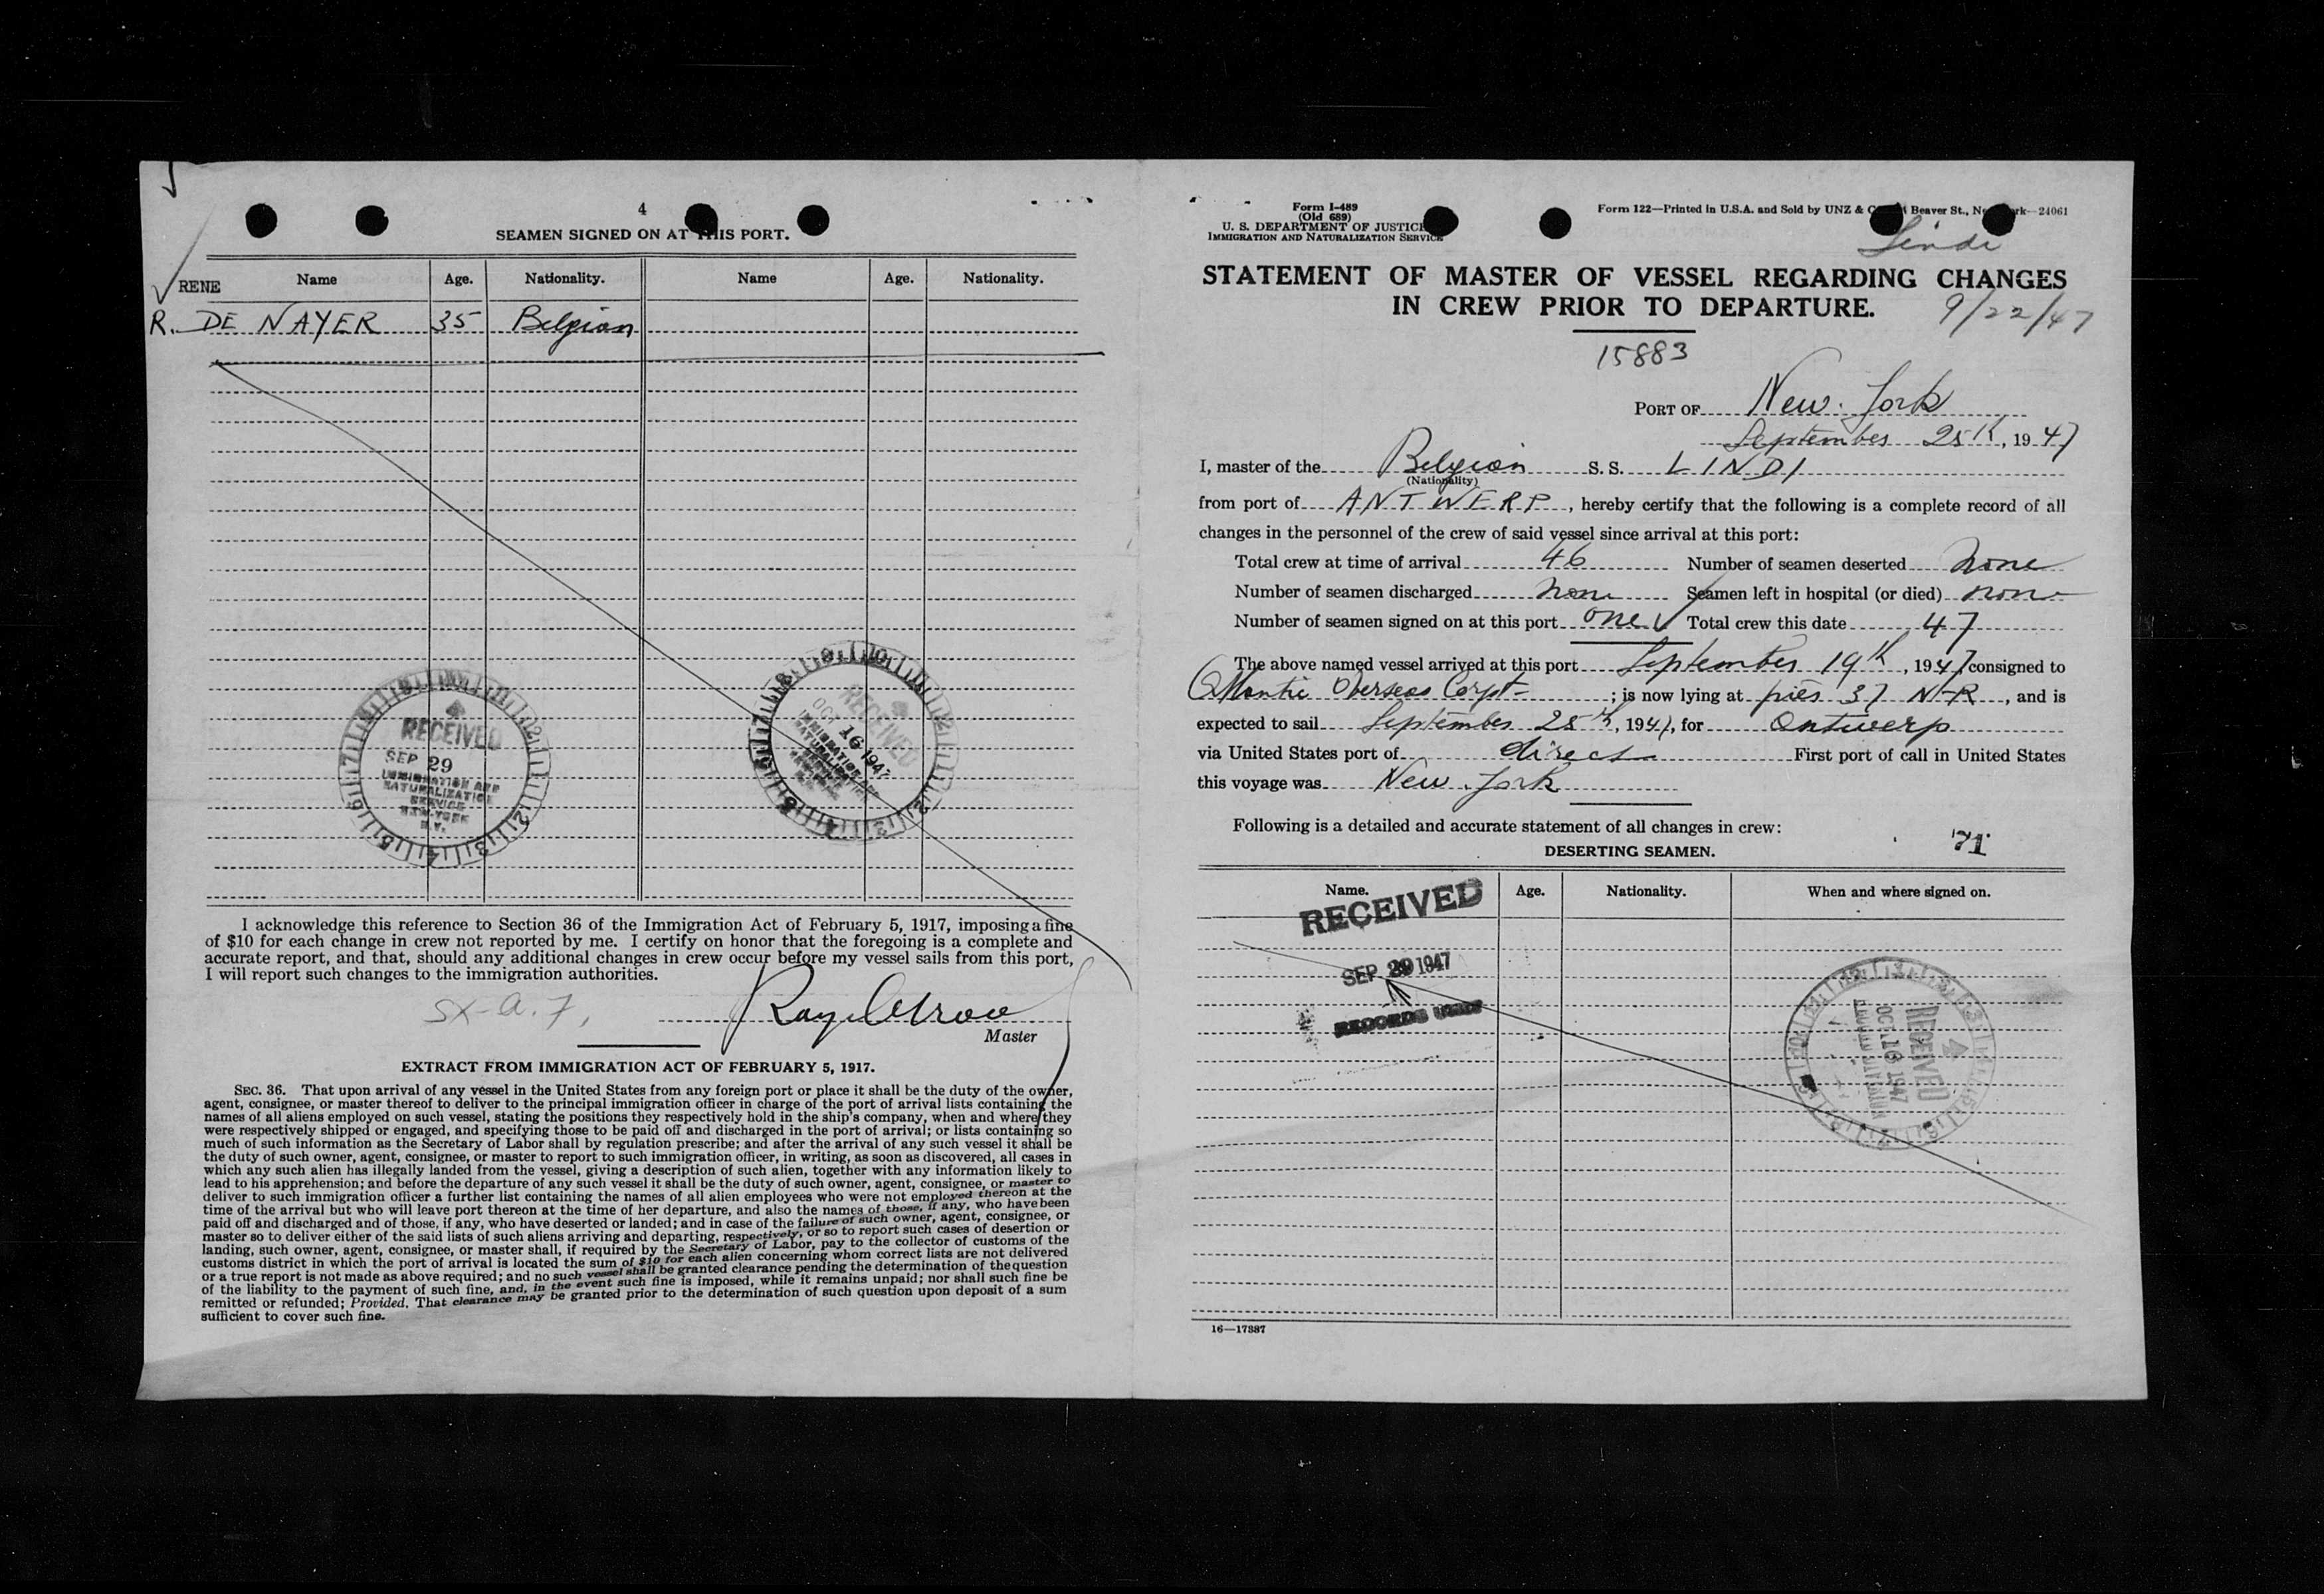 4
SEAMEN SIGNED ON AT THIS PORT.
Name Age. Nationality. Name Age. Nationality.
RENE
R. DE NAYER 35 Belgian
RECEIVED
SEP 29
IMMIGRATION AND
NATURALIZATION
SERVICE
NEW-YORK
N.Y.
RECEIVED
OCT 16 1947
I acknowledge this reference to Section 36 of the Immigration Act of February 5, 1917, imposing a fine
of $10 for each change in crew not reported by me. I certify on honor that the foregoing is a complete and
accurate report, and that, should any additional changes in crew occur before my vessel sails from this port,
I will report such changes to the immigration authorities.
SX-a. 7,
Master
EXTRACT FROM IMMIGRATION ACT OF FEBRUARY 5, 1917.
SEC. 36. That upon arrival of any vessel in the United States from any foreign port or place it shall be the duty of the owner,
agent, consignee, or master thereof to deliver to the principal immigration officer in charge of the port of arrival lists containing the
names of all aliens employed on such vessel, stating the positions they respectively hold in the ship's company, when and where they
were respectively shipped or engaged, and specifying those to be paid off and discharged in the port of arrival; or lists containing so
much of such information as the Secretary of Labor shall by regulation prescribe; and after the arrival of any such vessel it shall be
the duty of such owner, agent, consignee, or master to report to such immigration officer, in writing, as soon as discovered, all cases in
which any such alien has illegally landed from the vessel, giving a description of such alien, together with any information likely to
lead to his apprehension; and before the departure of any such vessel it shall be the duty of such owner, agent, consignee, or master to
deliver to such immigration officer a further list containing the names of all alien employees who were not employed thereon at the
time of the arrival but who will leave port thereon at the time of her departure, and also the names of those, if any, who have been
paid off and discharged and of those, if any, who have deserted or landed; and in case of the failure of such owner, agent, consignee, or
master so to deliver either of the said lists of such aliens arriving and departing, respectively, or so to report such cases of desertion or
landing, such owner, agent, consignee, or master shall, if required by the Secretary of Labor, pay to the collector of customs of the
customs district in which the port of arrival is located the sum of $10 for each alien concerning whom correct lists are not delivered
or a true report is not made as above required; and no such vessel shall be granted clearance pending the determination of the question
of the liability to the payment of such fine, and, in the event such fine is imposed, while it remains unpaid; nor shall such fine be
remitted or refunded; Provided, That clearance may be granted prior to the determination of such question upon deposit of a sum
sufficient to cover such fine.
Form I-489
(Old 689)
U. S. DEPARTMENT OF JUSTICE
IMMIGRATION AND NATURALIZATION SERVICE
Form 122—Printed in U.S.A. and Sold by UNZ & C Beaver St., New York—24061
Lindi
STATEMENT OF MASTER OF VESSEL REGARDING CHANGES
IN CREW PRIOR TO DEPARTURE.
9/22/47
15883
PORT OF New York
September 25th, 1947
I, master of the Belgian S. S. LINDI
(Nationality)
from port of ANTWERP, hereby certify that the following is a complete record of all
changes in the personnel of the crew of said vessel since arrival at this port:
Total crew at time of arrival 46 Number of seamen deserted none
Number of seamen discharged none Seamen left in hospital (or died) none
Number of seamen signed on at this port one Total crew this date 47
The above named vessel arrived at this port September 19th, 1947 consigned to
Atlantic Overseas Corpt-; is now lying at pier 37 N-R, and is
expected to sail September 25th, 1947, for Antwerp
via United States port of direct First port of call in United States
this voyage was New York
Following is a detailed and accurate statement of all changes in crew:
71
DESERTING SEAMEN.
Name. Age. Nationality. When and where signed on.
RECEIVED
SEP 29 1947
RECORDS UNIT
RECEIVED
OCT 16 1947
16—17387